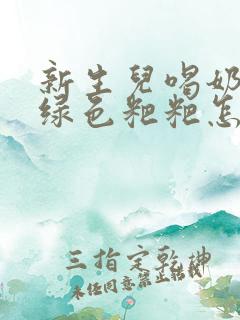 新生兒喝奶
绿色粑粑怎
三指定乾坤
未任同意禁止轉載